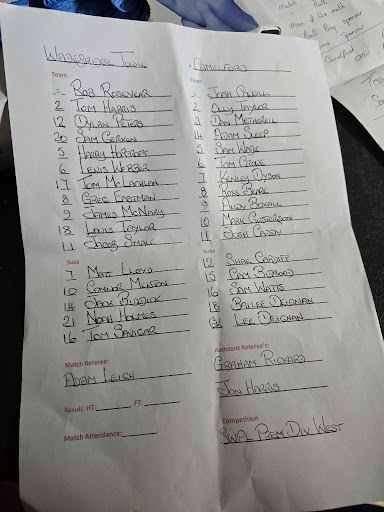 WADEBRIDGE TOWN
Team
1 ROB ROSEVEAR
2 TOM HARRIS
12 DYLAN PETERS
20 SAM GERKEN
5 HARRY HARTHOFF
6 LEWIS WEBBER
17 TOM McLACHLAN
8 GREG EASTMAN
9 JAMES McNARY
18 LOUIS TAYLOR
11 JACOB SMALE
Subs
7 MATT LLOYD
10 CONNOR MENTON
14 JACK BIDDICK
21 NOAH HOLMES
16 TOM SAVIGAR
Match Referee:
ADAM LEIGH
Result: HT: FT:
Match Attendance:
CAMELFORD
Team
1 JOSH POWELL
2 OLLY TAYLOR
3 DAN METHERELL
14 ADAM SLEEP
5 SAM WADE
6 TOM CROWE
7 KENLEY DYSON
8 ROSS BEARE
9 ANDY BOXALL
10 MARK GUSTERSON
11 JOSH CADDY
Subs
12 SHAE CARDIFF
15 CAM BIDGOOD
16 SAM WATTS
18 BAILEE DEIGNAN
GK LEE DEIGNAN
Assistant Referee's:
GRAHAM RICKARD
JON HARRIS
Competition
SWPL PREM DIV WEST
match Ball
man of the match
Ball Boy sponsor
Sponsor
Camelford